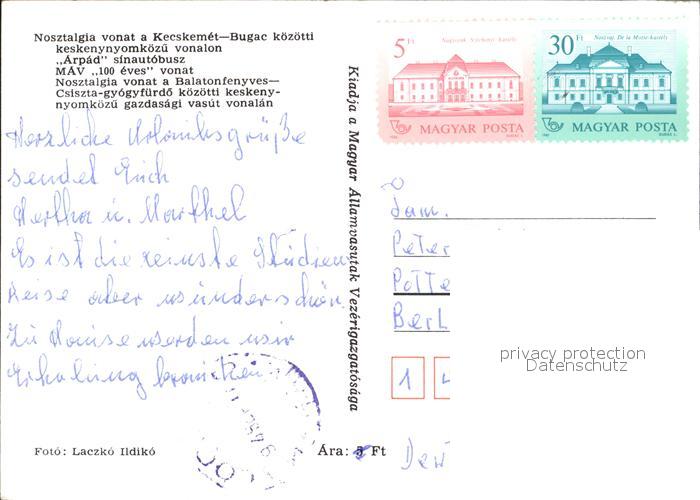 Nosztalgia vonat a Kecskemét—Bugac közötti
keskenynyomközű vonalon
„Árpád” sínautóbusz
MÁV „100 éves” vonat
Nosztalgia vonat a Balatonfenyves—
Csiszta-gyógyfürdő közötti keskeny-
nyomközű gazdasági vasút vonalán
Herzliche Urlaubsgrüße
sendet Euch
Hertha u. Marthel
Es ist die reinste Studien
Reise aber wunderschön.
Zu Hause werden wir
Erholung brauchen.
Fotó: Laczkó Ildikó
Kiadja a Magyar Államvasutak Vezérigazgatósága
Ára: 5 Ft
5 Ft
MAGYAR POSTA
30 Ft
MAGYAR POSTA
Fam.
Peter
Potte
Berl
1 4
privacy protection
Datenschutz